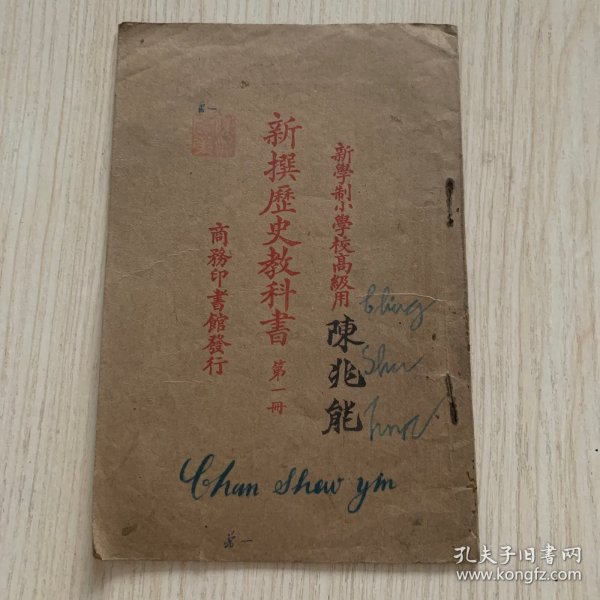 新學制小學校高級用
陳兆能
新撰歷史教科書 第一冊
商務印書館發行
第一
Ching
Shu
Chan Shew yin
第一
孔夫子旧书网
www.kongfz.com